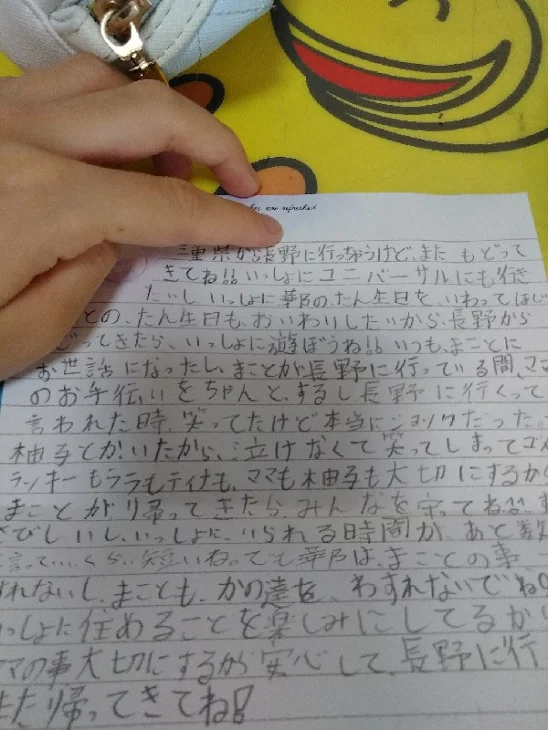 are refreshed
三重県から長野に行っちゃうけど、また もどって
きてね!!いっしょにユニバーサルにも行き
たいし、いっしょに華乃のたん生日を、いわってほし
との、たん生日も、おいわいしたいから、長野から
どってきたら、いっしょに遊ぼうね!!いつも、まことに
お世話になったし、まことが、長野に行っている間、ママ
のお手伝いをちゃんと、するし長野に行くって
言われた時、笑ってたけど本当にショックだった
柚子とかいたから、泣けなくて笑ってしまってゴメ
ラッキーもララもティナも、ママも柚子も大切にするから
まことが、帰ってきたら、みんなを守ってね!!
さびしいし、いっしょに、いられる時間が、あと数
言って、くらい短いねっでも華乃は、まことの事、
すれないし、まことも、かの達を、わすれないでね
っしょに住めることを楽しみにしてるから
ママの事大切にするから安心して、長野に行
また帰ってきてね!